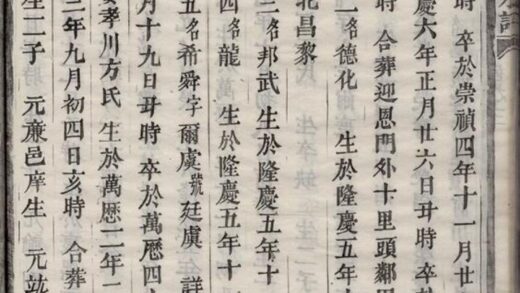 時 卒於崇禎四年十一月廿
慶六年正月廿六日丑時 卒於
時 合葬迎恩門外十里頭鄰
一名德化 生於隆慶五年
二名邦武 生於隆慶五年十
北昌黎
四名龍 生於隆慶五年十
五名希舜字爾虞號廷虞 詳
月十九日丑時 卒於萬厯四
孝川方氏 生於萬厯二年一
三年九月初四日亥時 合葬
生二子 元亷邑庠生 元